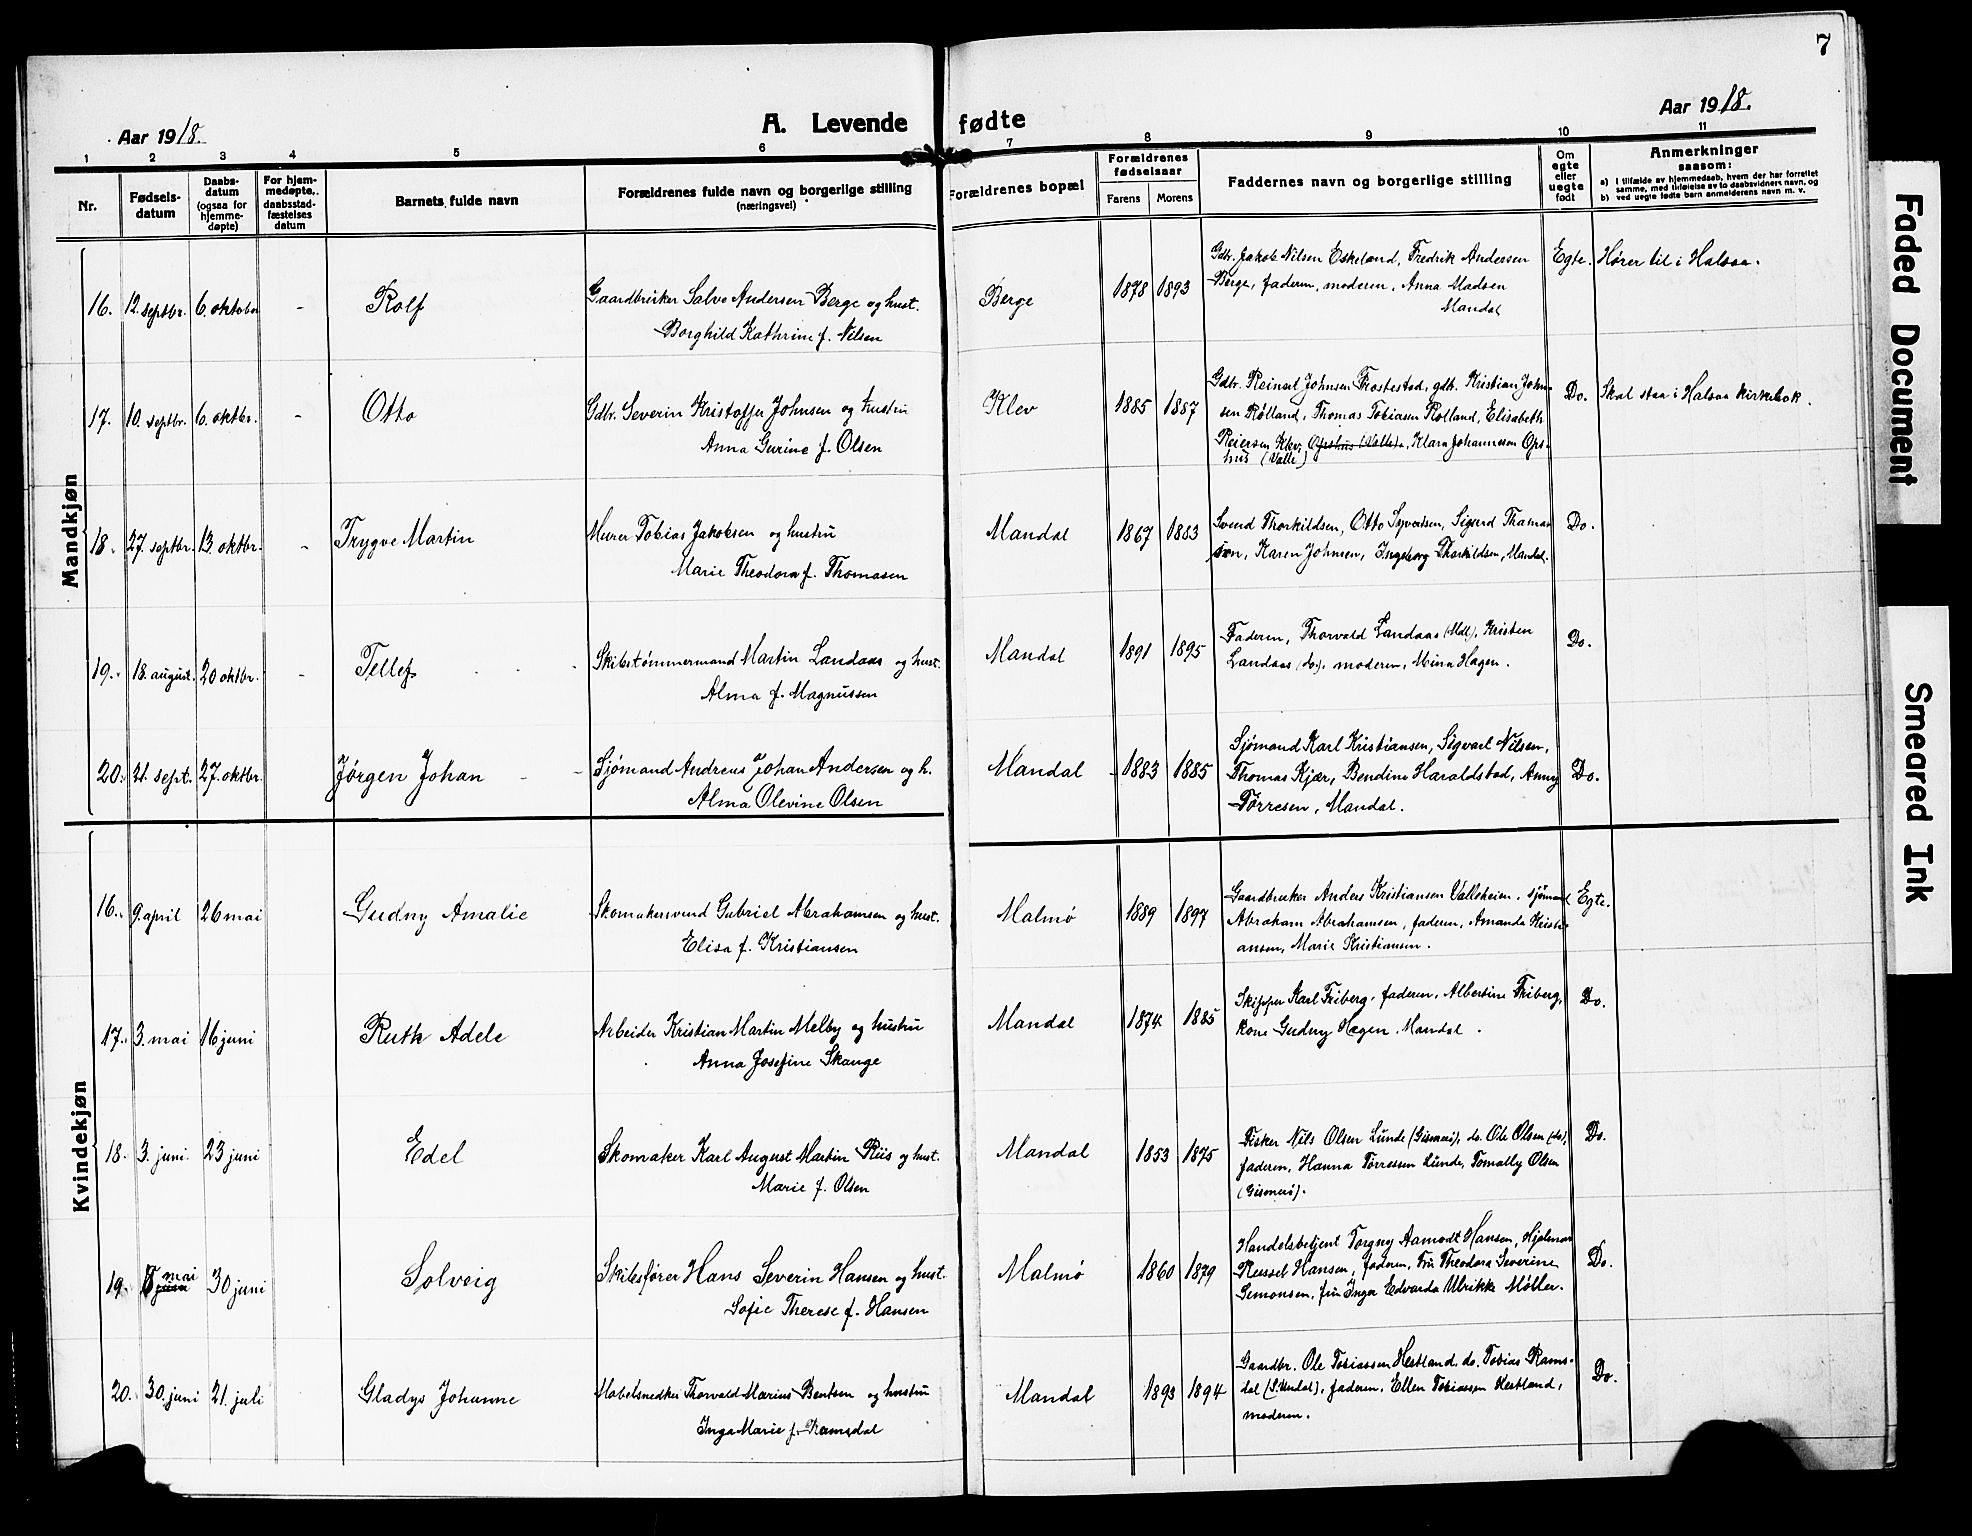 7
Aar 1918.
A. Levende fødte
Aar 1918.
1 2 3 4 5 6 7 8 9 10 11
Nr.
Fødsels-
datum
Daabs-
datum
(ogsaa for
hjemme-
døpte)
For hjem-
medøpte,
daabsstad-
fæstelses
datum
Barnets fulde navn
Forældrenes fulde navn og borgerlige stilling
(næringsvei)
Forældrenes bopæl
Forældrenes
fødselsaar
Farens Morens
Faddernes navn og borgerlige stilling
Om
egte
eller
uegte
født
Anmerkninger
saasom:
a) I tilfælde av hjemmedaab, hvem der har forrettet
samme, med tilføielse av to daabsvidners navn, og
b) ved uegte fødte barn anmelderens navn m. v.
Mandkjøn
16. 12. septbr. 6. oktober - Rolf
Gaardbruker Salve Andersen Berge og hust.
Borghild Kathrine f. Nilsen
Berge 1878 1893
Gdbr. Jakob Nilsen Eskeland, Fredrik Andersen
Berge, faderen, moderen, Anna Madsen
Mandal
Egte. Hører til i Halsaa.
17. 10. septbr. 6. oktbr. - Otto
Gdbr. Severin Kristoffer Johnsen og hustru
Anna Gurine f. Olsen
Klev 1885 1887
Gdbr. Reinert Johnsen Frostestad, gdb. Kristian John-
sen Rølland, Thomas Tobiasen Rølland, Elisabeth
Reiersen Klev, Opshus (Valle), Klara Johannesen Ops-
hus (Valle)
Do. Skal staa i Halsaa kirkebok.
18. 27. septbr. 13. oktbr. - Trygve Martin
Murer Tobias Jakobsen og hustru
Marie Theodora f. Thomasen
Mandal 1867 1883
Svend Thorkildsen, Otto Syvertsen, Sigurd Thomas-
sen, Karen Johnsen, Ingeborg Thorkildsen, Mandal.
Do.
19. 18. august. 20 oktbr. - Tellef
Skibstømmermand Martin Landaas og hust.
Alma f. Magnussen
Mandal 1891 1895
Faderen, Thorvald Landaas (Mdl), Kristen
Landaas (do), moderen, Mina Hagen.
Do.
20. 21. sept. 27. oktbr. Jørgen Johan
Sjømand Andreas Johan Andersen og h.
Alma Olevine Olsen
Mandal 1883 1885
Sjømand Karl Kristiansen, Sigvart Nilsen,
Thomas Kjær, Bendine Haraldstad, Anny
Tørresen, Mandal.
Do.
Kvindekjøn
16. 9. april 26 mai Gudny Amalie
Skomakersvend Gabriel Abrahamsen og hust.
Elisa f. Kristiansen
Malmø 1889 1897
Gaardbruker Anders Kristiansen Valleheien, sjømand
Abraham Abrahamsen, faderen, Amanda Kristi-
ansen, Marie Kristiansen.
Egte.
17. 3. mai 16 juni Ruth Adele
Arbeider Kristian Martin Melby og hustru
Anna Josefine Skauge
Mandal 1874 1885
Skipper Karl Friberg, faderen, Albertine Friberg,
kone Gudny Hagen. Mandal.
Do.
18. 3. juni 23 juni Edel
Skomaker Karl August Martin Riis og hust.
Marie f. Olsen
Mandal 1853 1875
Fisker Nils Olsen Lunde (Gismerø), do. Ole Olsen (do),
faderen, Hanna Tørressen Lunde, Tomally Olsen
(Gismerø).
Do.
19. mai juni 30 juni Solveig
Skibsfører Hans Severin Hansen og hust.
Sofie Therese f. Hansen
Malmø 1860 1879
Handelsbetjent Torgny Aamodt Hansen, Hjalmar
Russel Hansen, faderen, Fru Theodora Severine
Simonsen, fru Inga Edvarda Ulrikke Møller.
Do.
20. 30. juni 21. juli Gladys Johanne
Møbelsnedker Thorvald Marius Bentsen og hustru
Inga Marie f. Ramsdal
Mandal 1893 1894
Gaardbr. Ole Tobiassen Hestland, do. Tobias Rams-
dal (S. Undal), faderen, Ellen Tobiassen Hestland,
moderen.
Do.
Faded Document
Smeared Ink